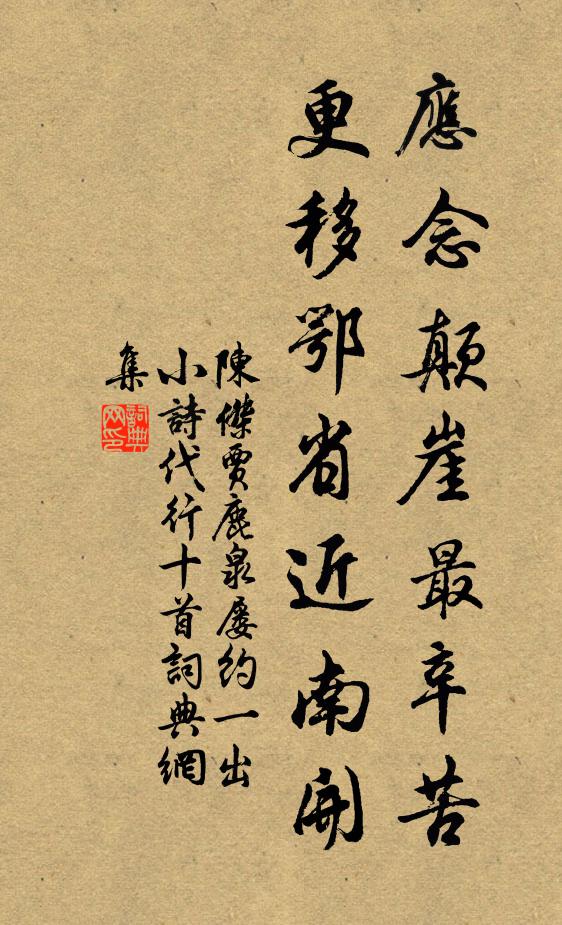 應念顛崖最辛苦
更移鄂省近南開
陳傑賈鹿泉屡約一出
小詩代行十首詞典網
集
詞典
网印